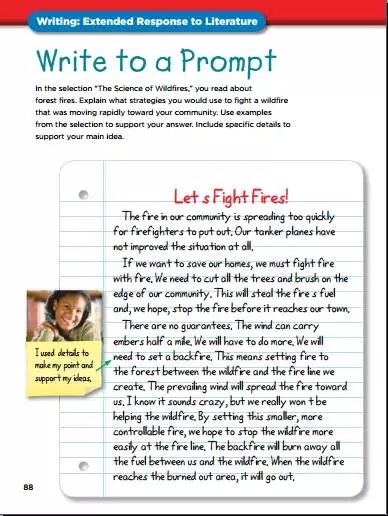 Writing: Extended Response to Literature
Write to a Prompt
In the selection "The Science of Wildfires," you read about
forest fires. Explain what strategies you would use to fight a wildfire
that was moving rapidly toward your community. Use examples
from the selection to support your answer. Include specific details to
support your main idea.
Let s Fight Fires!
The fire in our community is spreading too quickly
for firefighters to put out. Our tanker planes have
not improved the situation at all.
If we want to save our homes, we must fight fire
with fire. We need to cut all the trees and brush on the
edge of our community. This will steal the fire s fuel
and, we hope, stop the fire before it reaches our town.
There are no guarantees. The wind can carry
embers half a mile. We will have to do more. We will
need to set a backfire. This means setting fire to
the forest between the wildfire and the fire line we
create. The prevailing wind will spread the fire toward
us. I know it sounds crazy, but we really won t be
helping the wildfire. By setting this smaller, more
controllable fire, we hope to stop the wildfire more
easily at the fire line. The backfire will burn away all
the fuel between us and the wildfire. When the wildfire
reaches the burned out area, it will go out.
I used details to
make my point and
support my ideas.
88